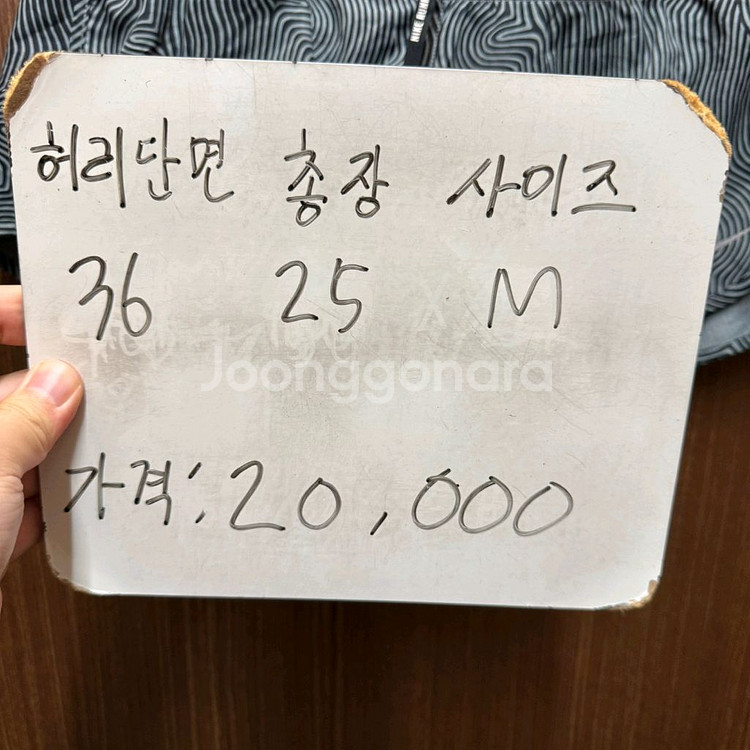 NIKE RUNN
허리단면 총장 사이즈
36 25 M
Joonggonara
가격: 20,000